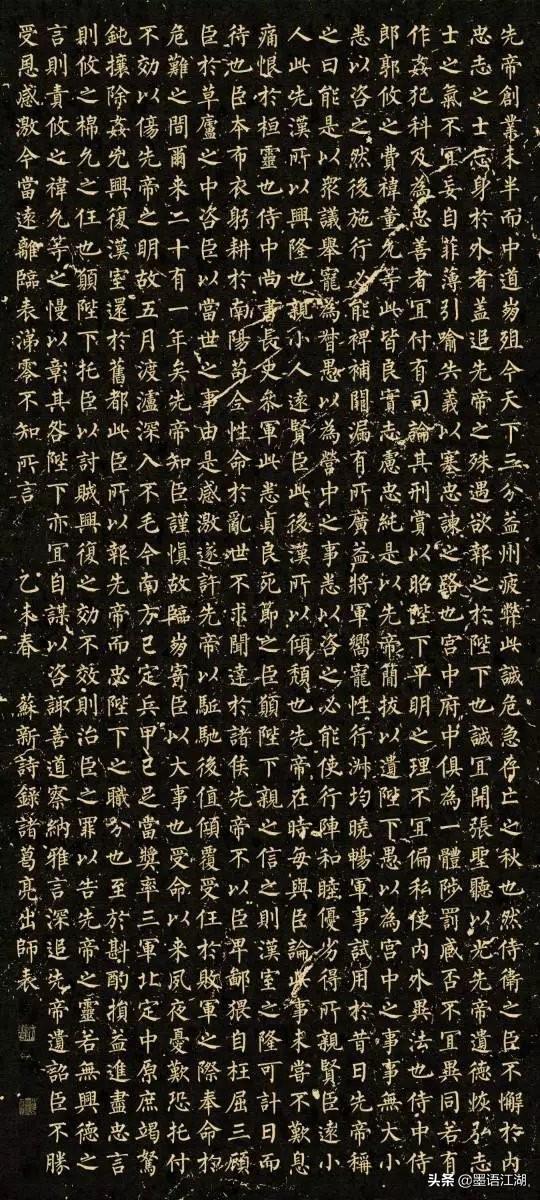 先帝創業未半而中道崩殂今天下三分益州疲弊此誠危急存亡之秋也然侍衛之臣不懈於內
忠志之士忘身於外者蓋追先帝之殊遇欲報之於陛下也誠宜開張聖聽以光先帝遺德恢弘志
士之氣不宜妄自菲薄引喻失義以塞忠諫之路也宮中府中俱為一體陟罰臧否不宜異同若有
作姦犯科及為忠善者宜付有司論其刑賞以昭陛下平明之理不宜偏私使內外異法也侍中侍
郎郭攸之費禕董允等此皆良實志慮忠純是以先帝簡拔以遺陛下愚以為宮中之事事無大小
悉以咨之然後施行必能裨補闕漏有所廣益將軍嚮寵性行淑均曉暢軍事試用於昔日先帝稱
之曰能是以眾議舉寵為督愚以為營中之事悉以咨之必能使行陣和睦優劣得所親賢臣遠小
人此先漢所以興隆也親小人遠賢臣此後漢所以傾頹也先帝在時每與臣論此事未嘗不歎息
痛恨於桓靈也侍中尚書長史參軍此悉貞良死節之臣願陛下親之信之則漢室之隆可計日而
待也臣本布衣躬耕於南陽苟全性命於亂世不求聞達於諸侯先帝不以臣卑鄙猥自枉屈三顧
臣於草廬之中咨臣以當世之事由是感激遂許先帝以驅馳後值傾覆受任於敗軍之際奉命於
危難之間爾來二十有一年矣先帝知臣謹慎故臨崩寄臣以大事也受命以來夙夜憂歎恐托付
不効以傷先帝之明故五月渡瀘深入不毛今南方已定兵甲已足當獎率三軍北定中原庶竭駑
鈍攘除姦兇興復漢室還於舊都此臣所以報先帝而忠陛下之職分也至於斟酌損益進盡忠言
則攸之禕允之任也願陛下托臣以討賊興復之効不效則治臣之罪以告先帝之靈若無興德之
言則責攸之禕允等之慢以彰其咎陛下亦宜自謀以咨諏善道察納雅言深追先帝遺詔臣不勝
受恩感激今當遠離臨表涕零不知所言 乙未春 蘇新詩錄諸葛亮出師表
头条 @墨语江湖